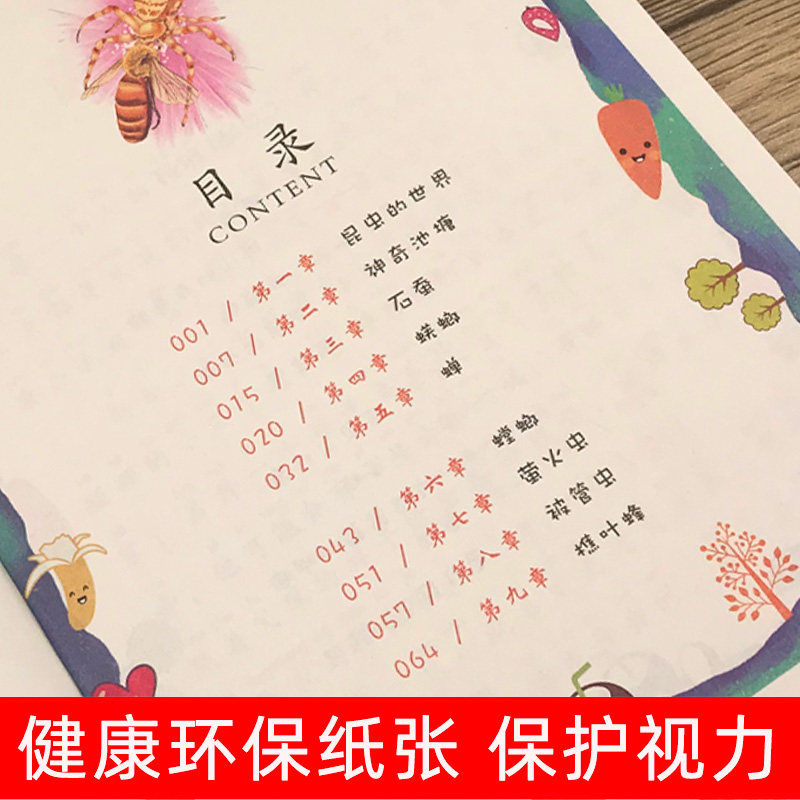 目录
CONTENT
001 / 第一章 昆虫的世界
007 / 第二章 神奇池塘
015 / 第三章 石蚕
020 / 第四章 蜣螂
032 / 第五章 蝉
043 / 第六章 螳螂
051 / 第七章 萤火虫
057 / 第八章 被管虫
064 / 第九章 樵叶蜂
健康环保纸张 保护视力